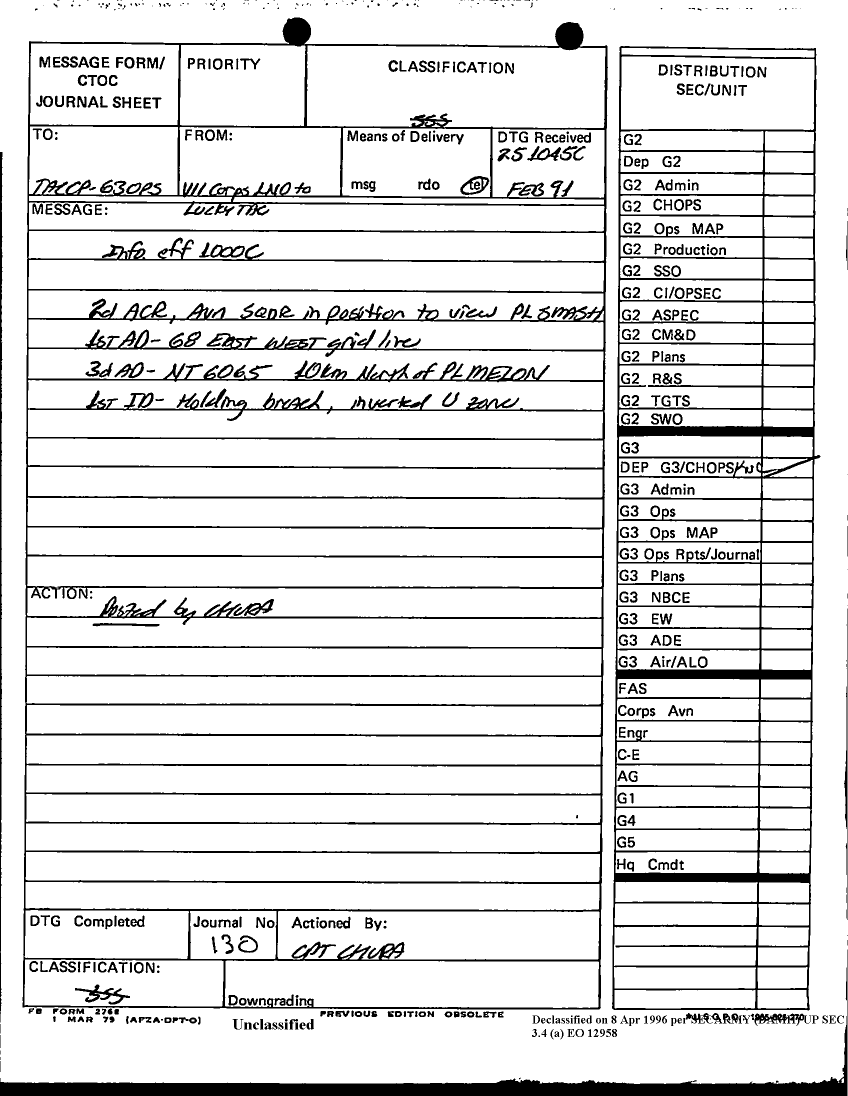 MESSAGE FORM/
CTOC
JOURNAL SHEET
PRIORITY
CLASSIFICATION
SSS
TO:
TACCP-G3OPS
FROM:
VII Corps LNO to
LUCKY TAC
Means of Delivery
msg rdo tel
DTG Received
251045C
FEB 91
MESSAGE:
Info eff 1000C
2d ACR, Avn in position to view PL SMASH
1ST AD- 68 EAST WEST grid line
3d AD- NT 6065 10km North of PL MELON
1ST ID- Holding breach, inverted U zone.
ACTION:
Posted by CHURA
DTG Completed
Journal No
130
Actioned By:
CPT CHURA
CLASSIFICATION:
SSS
Downgrading
FB FORM 2768
1 MAR 79 (AFZA-DPT-O)
Unclassified
PREVIOUS EDITION OBSOLETE
DISTRIBUTION
SEC/UNIT
G2
Dep G2
G2 Admin
G2 CHOPS
G2 Ops MAP
G2 Production
G2 SSO
G2 CI/OPSEC
G2 ASPEC
G2 CM&D
G2 Plans
G2 R&S
G2 TGTS
G2 SWO
G3
DEP G3/CHOPS
G3 Admin
G3 Ops
G3 Ops MAP
G3 Ops Rpts/Journal
G3 Plans
G3 NBCE
G3 EW
G3 ADE
G3 Air/ALO
FAS
Corps Avn
Engr
C-E
AG
G1
G4
G5
Hq Cmdt
Declassified on 8 Apr 1996 per SECARMY (DAMH) UP SEC
3.4 (a) EO 12958